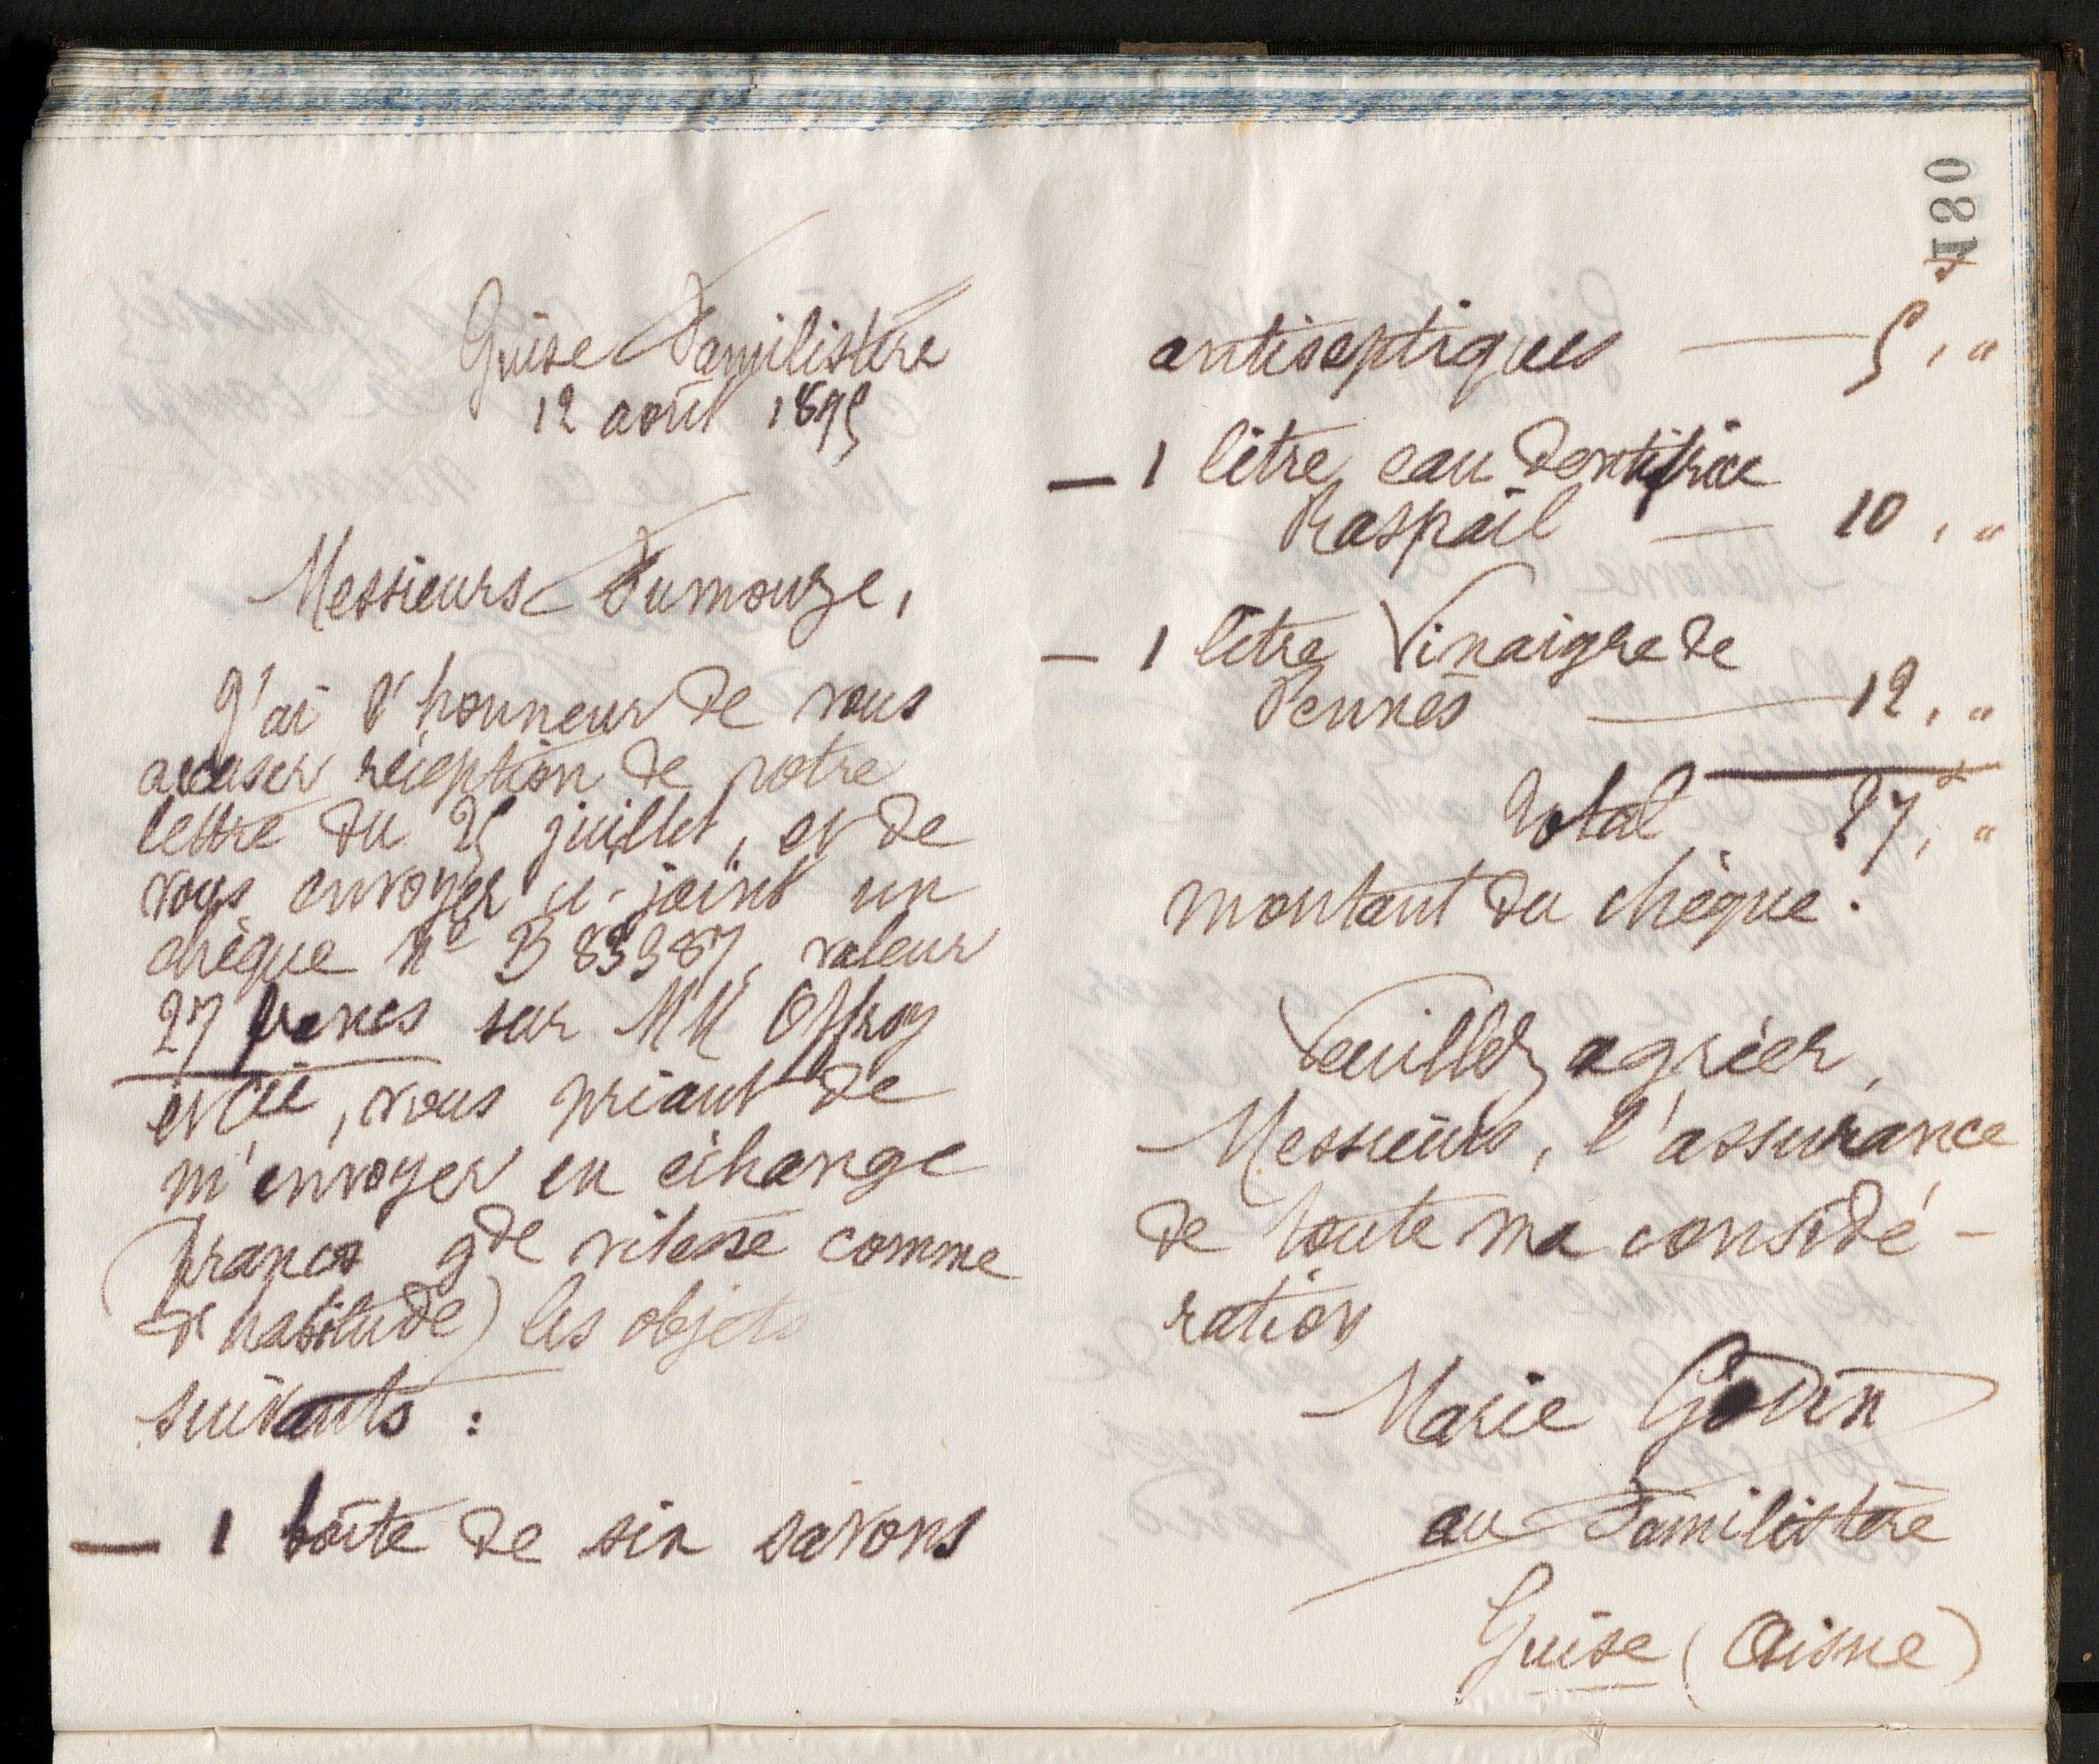 180
Guise Familistère
12 août 1895
Messieurs Fumouze,
J'ai l'honneur de vous
accuser réception de votre
lettre du 25 juillet, et de
vous envoyer ci-joint un
chèque no B 83987, valeur
27 francs sur MM Offroy
et Cie, vous priant de
m'envoyer en échange
(franco gde vitesse comme
d'habitude) les objets
suivants :
— 1 boîte de six savons
antiseptiques — 5f, "
— 1 litre eau dentifrice
Raspail — 10, "
— 1 litre Vinaigre de
Pennès — 12, "
Total 27f, "
montant du chèque.
Veuillez agréer,
Messieurs, l'assurance
de toute ma considé-
ration
Marie Godin
au Familistère
Guise (Aisne)